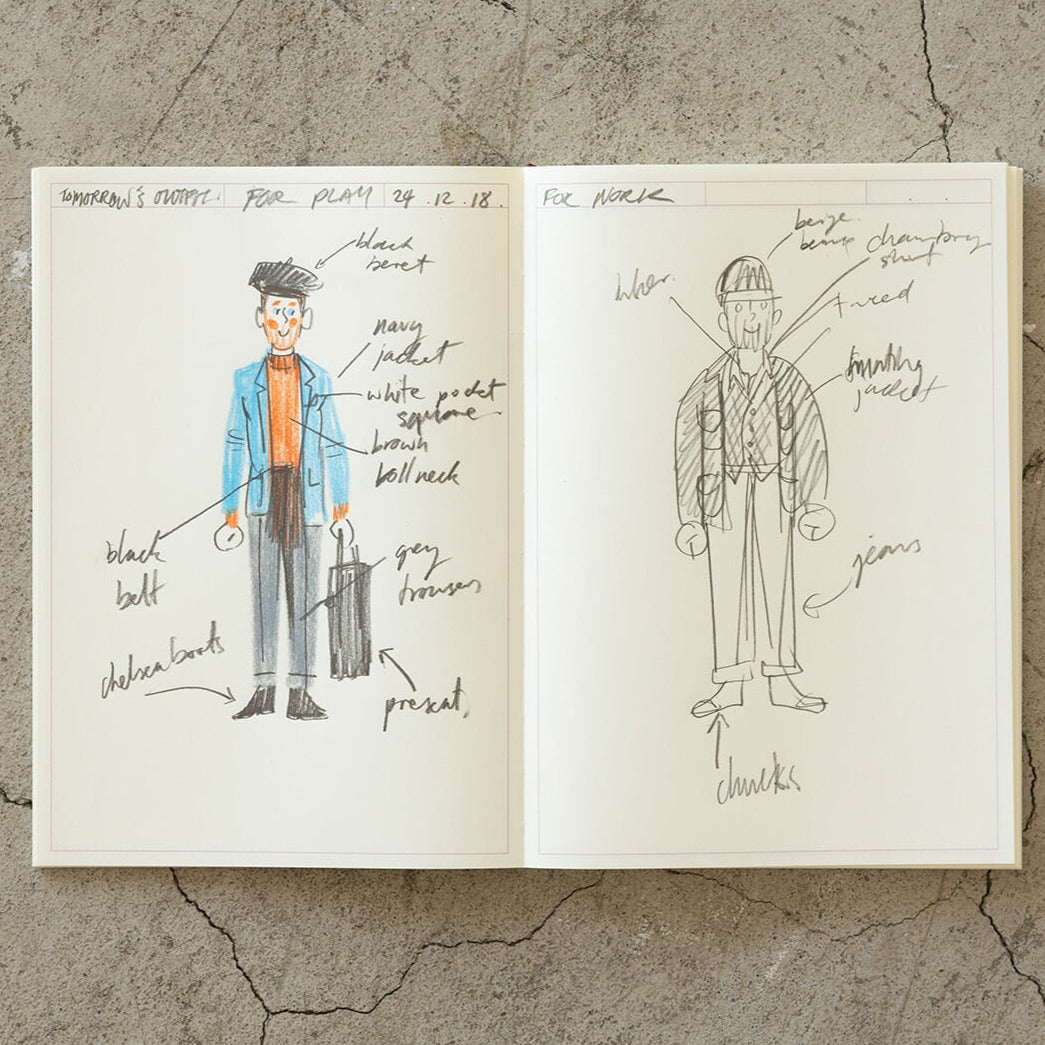 TOMORROW'S OUTFIT.
FOR PLAY
24.12.18.
black
beret
navy
jacket
white pocket
square
brown
rollneck
black
belt
grey
trousers
chelsea boots
present
FOR WORK
beige
chambray
shirt
jacket
jeans
chucks